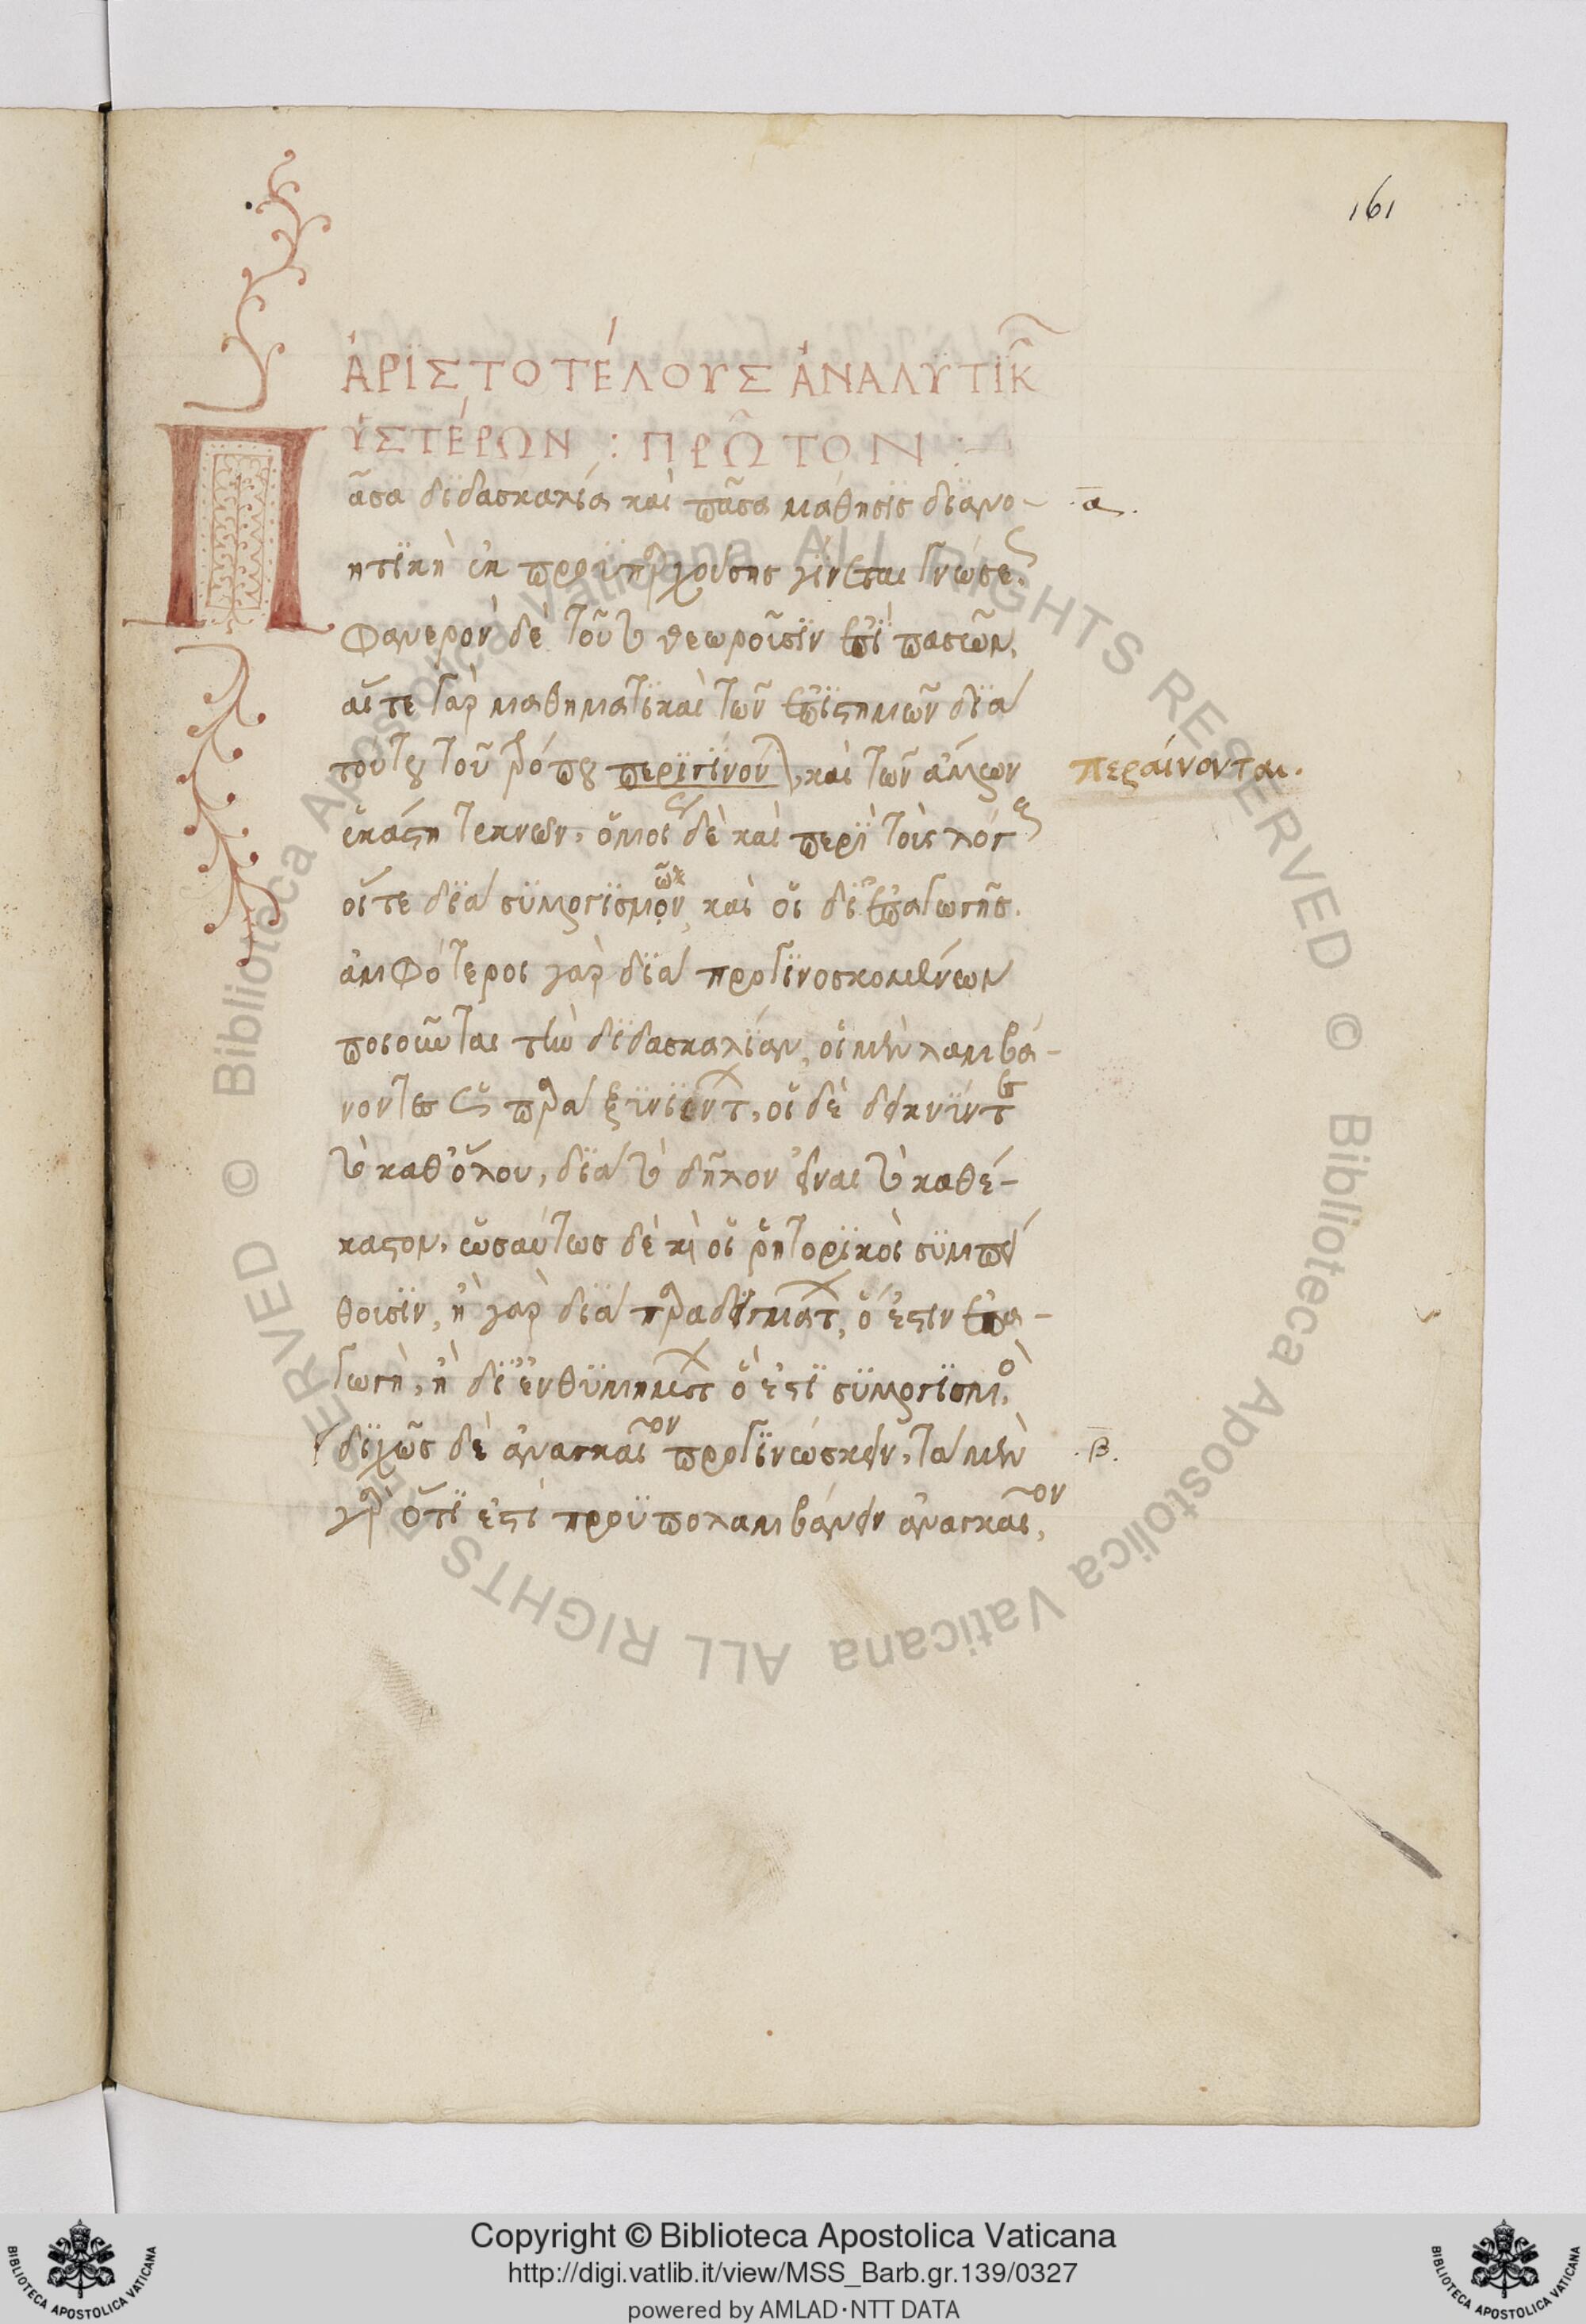 161
ἈΡΪΣΤΟΤΈΛΟΥΣ ἈΝΑΛΥΤΪΚ͂
ὙΣΤΈΡΩΝ : ΠΡΩ͂ΤΟΝ :-
Πᾶσα δϊδασκαλία καὶ πᾶσα μάθησϊς δϊανο- ·α̅·
ητϊκὴ ἐκ προϋπαρχούσης γίνεται γνώσε·
Φανερὸν δὲ τοῦτο θεωροῦσϊν ἐπὶ πασῶν,
αἵτε γὰρ μαθηματϊκαὶ τῶν ἐπϊστημῶν δϊὰ
τούτου τοῦ τρόπου περϊγίνον), καὶ τῶν ἄλλων περαίνονται·
ἑκάστη τεχνῶν, ὁμοί δὲ καὶ περὶ τοὺς λόγ
οἵτε δϊὰ συλλογϊσμῶν, καὶ οἱ δϊ' ἐπαγωγῆς·
ἀμφότεροι γὰρ δϊὰ προγϊνοσκομένων
ποιοῦνται τὴν δϊδασκαλίαν, οἱ μὲν λαμβά-
νοντες ὡς παρὰ ξϋνϊέντ, οἱ δὲ δεικνύντες
τὸ καθόλου, δϊὰ τὸ δῆλον εἶναι τὸ καθέ-
καστον, ὡσαύτως δὲ κὶ οἱ ῥητορϊκοὶ συμπεί
θουσϊν, ἢ γὰρ δϊὰ παραδειγμάτ, ὅ ἐστιν ἐπα-
γωγὴ, ἢ δϊ' ἐνθυμημάτ ὅ ἐστϊ συλλογϊσμὸ,
δϊχῶς δὲ ἀναγκαῖον προγϊνώσκειν, τὰ μὲν ·β̅·
γὰρ ὅτϊ ἐστὶ προϋπολαμβάνειν ἀναγκαῖον,
Copyright © Biblioteca Apostolica Vaticana
http://digi.vatlib.it/view/MSS_Barb.gr.139/0327
powered by AMLAD·NTT DATA
BIBLIOTECA APOSTOLICA VATICANA
BIBLIOTECA APOSTOLICA VATICANA
© Biblioteca Apostolica Vaticana ALL RIGHTS RESERVED
© Biblioteca Apostolica Vaticana ALL RIGHTS RESERVED